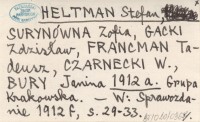 HELTMAN Stefan,
SURYNÓWNA Zofia, GACKI
Zdzisław, FRANCMAN Ta-
deusz, CZARNECKI W.,
BURY Janina 1912 a. Grupa
Krakowska. — W: Sprawozda-
nie 1912 f, s. 29-33.